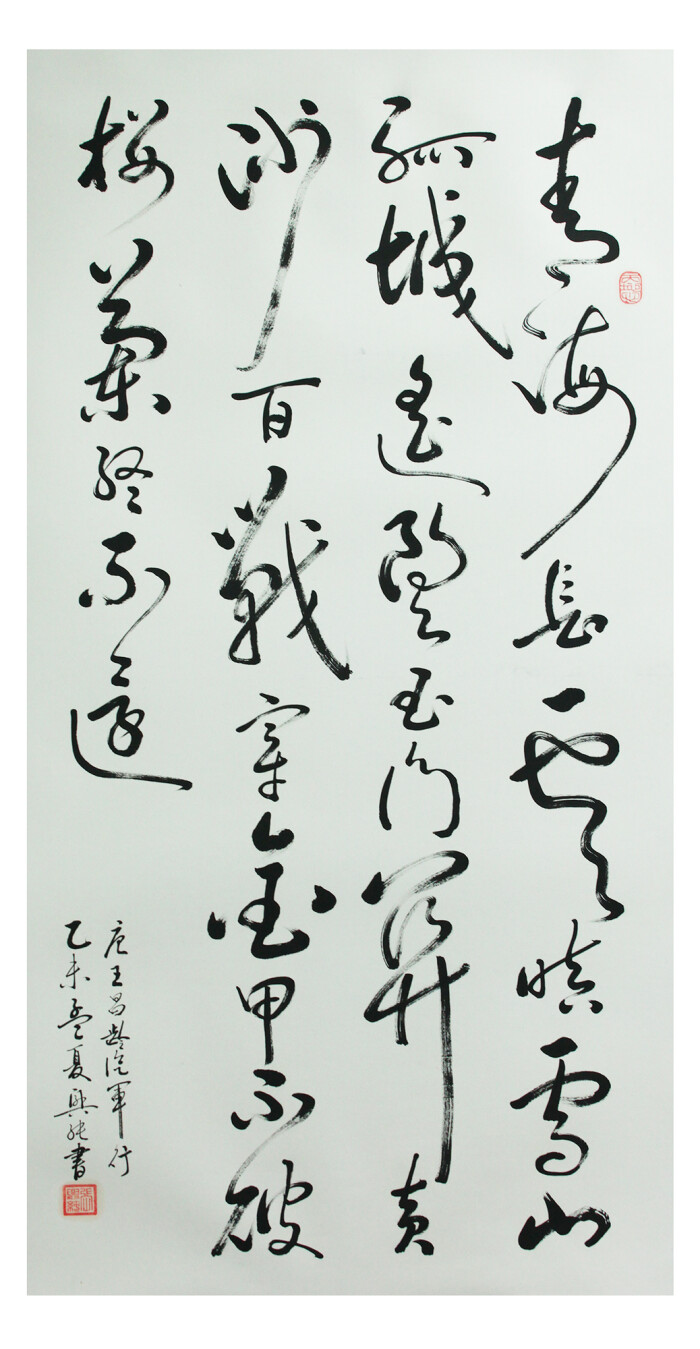 青海長雲暗雪山
孤城遙望玉門關黄
沙百戰穿金甲不破
樓蘭終不還
唐王昌齡從軍行
乙未孟夏興書